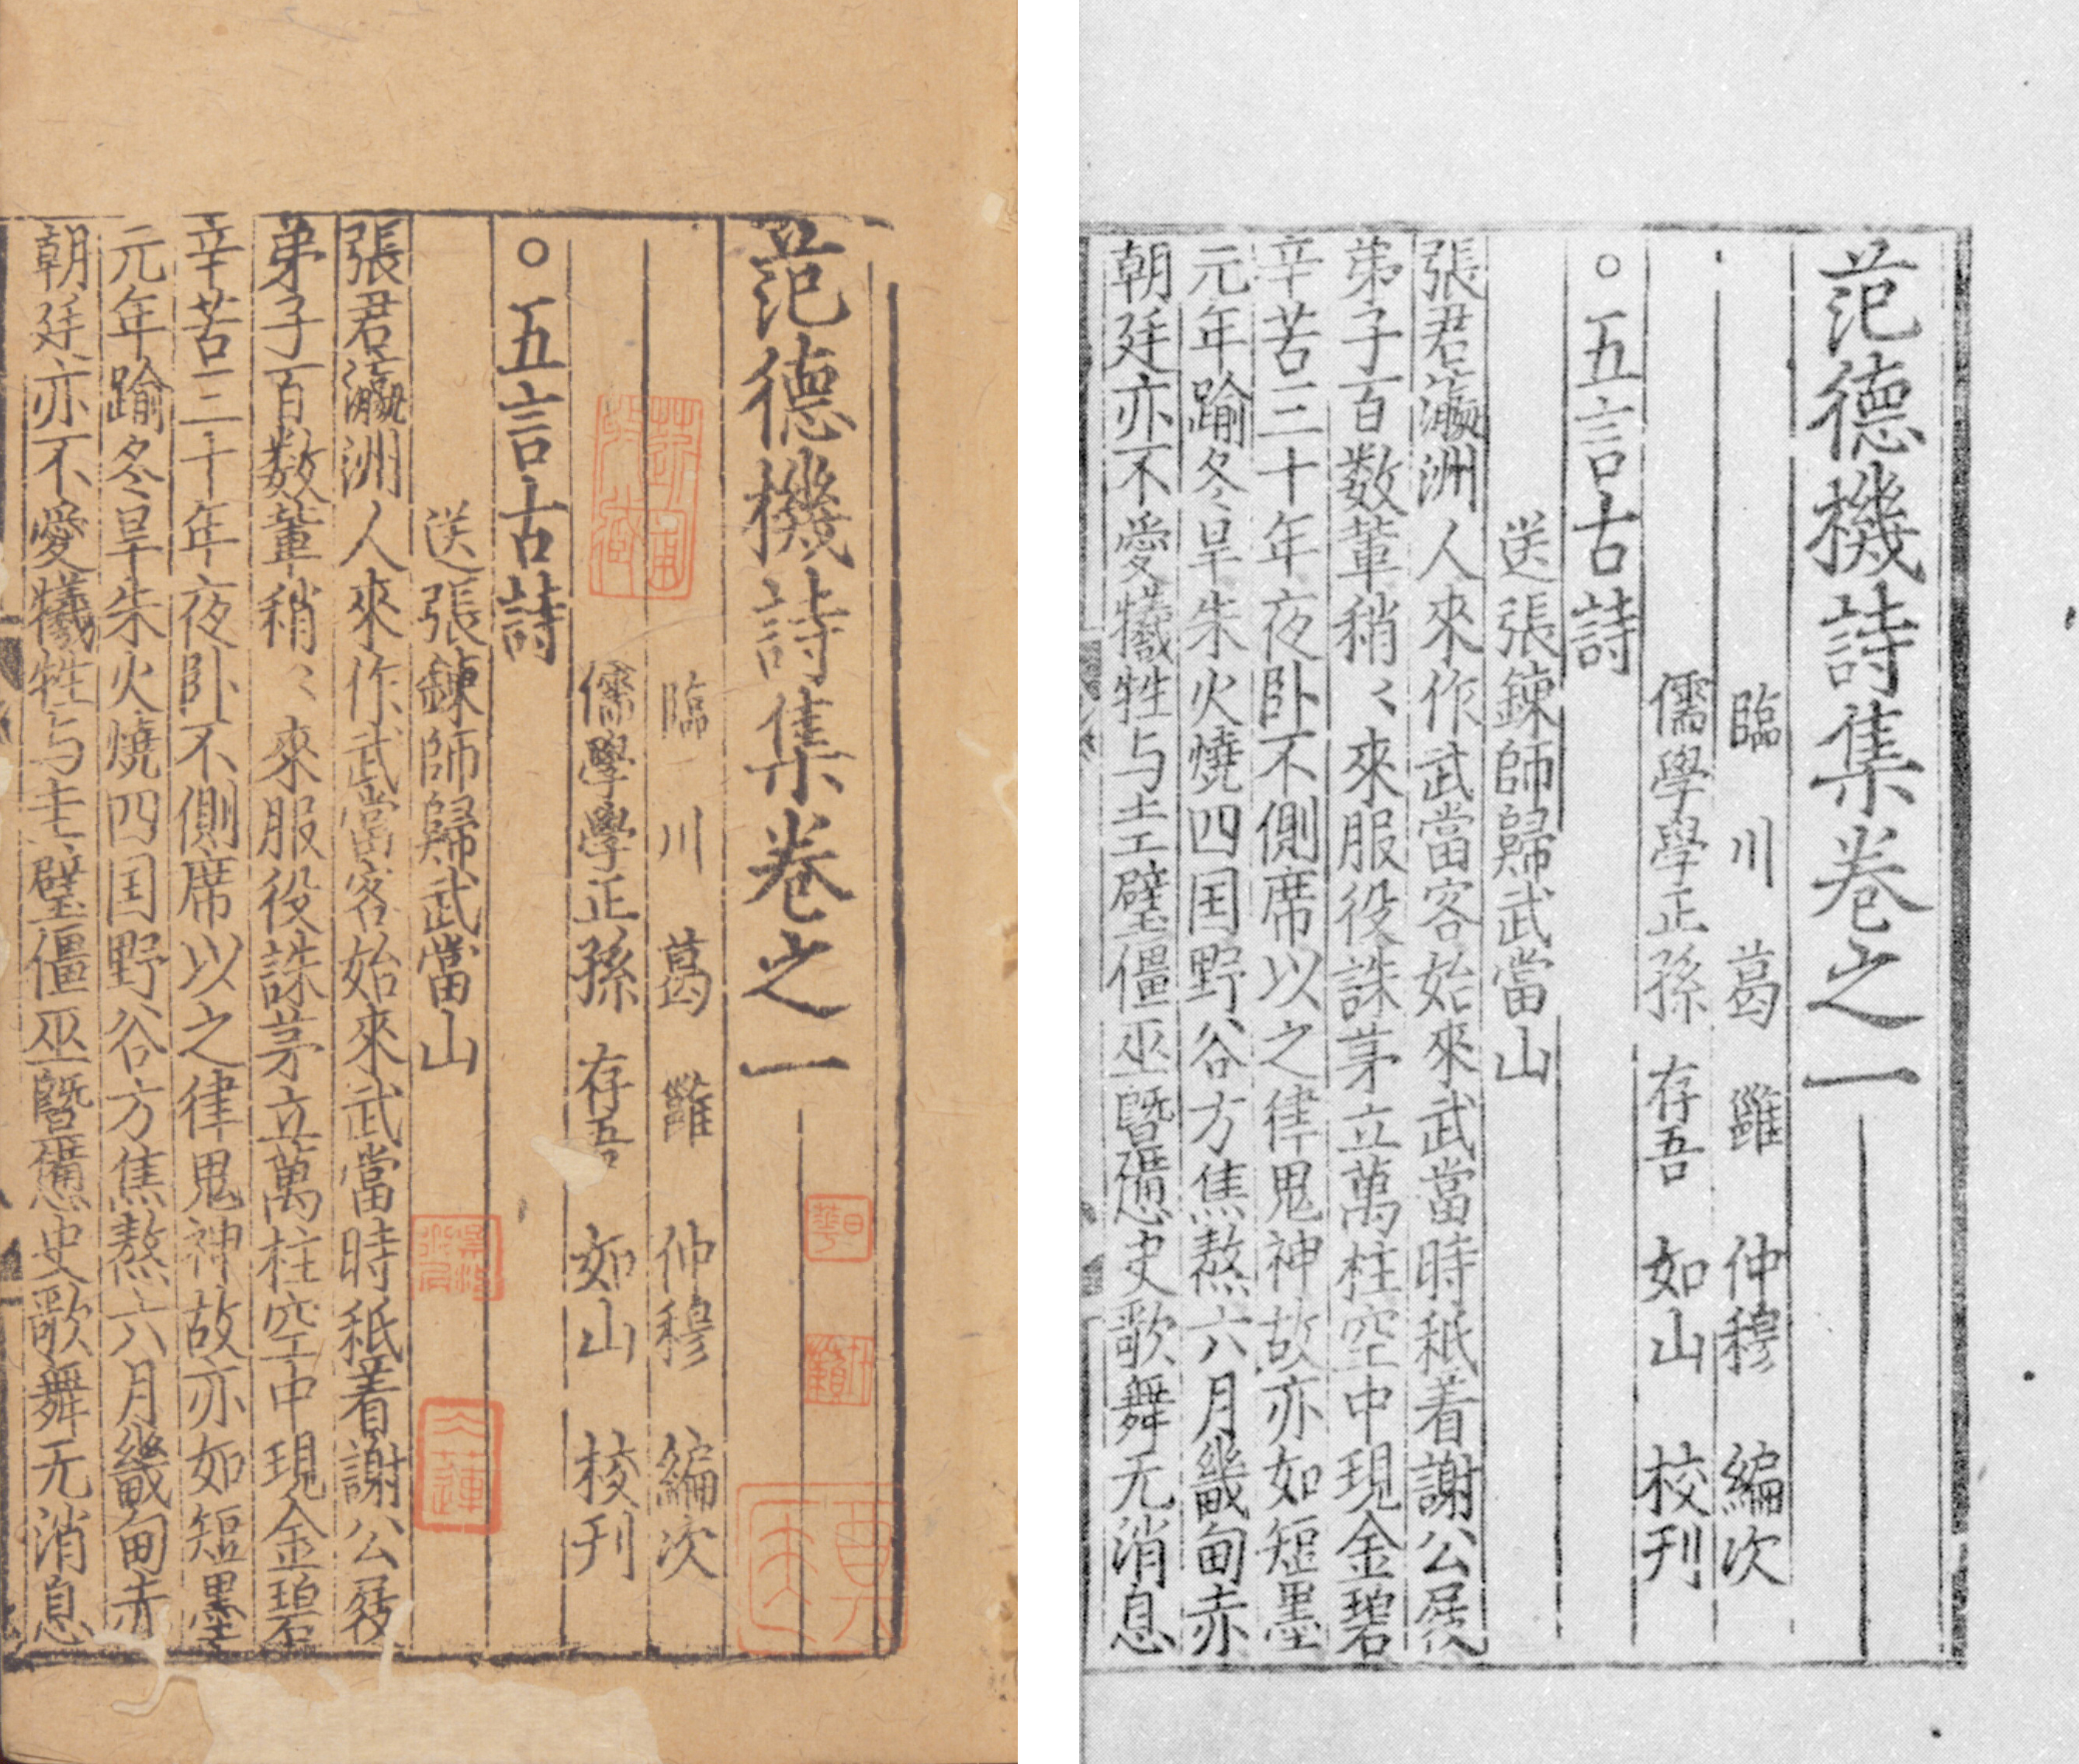 范德機詩集卷之一
臨川葛雝仲穆編次
儒學學正孫存吾如山校刊
○五言古詩
送張鍊師歸武當山
張君瀛洲人來作武當客始來武當時秖着謝公屐
弟子百数輩稍〻來服役誅茅立萬柱空中現金碧
辛苦二十年夜卧不側席以之律鬼神故亦如短墨
元年踰冬旱朱火燒四囯野谷方焦熬六月畿甸赤
朝廷亦不愛犧牲与圭璧僵巫暨史歌舞无消息
范德機詩集卷之一
臨川葛雝仲穆編次
儒學學正孫存吾如山校刊
○五言古詩
送張鍊師歸武當山
張君瀛洲人來作武當客始來武當時秖着謝公屐
弟子百数輩稍〻來服役誅茅立萬柱空中現金碧
辛苦三十年夜卧不側席以之律鬼神故亦如短墨
元年踰冬旱朱火燒四囯野谷方焦熬六月畿甸赤
朝廷亦不愛犧牲与圭璧僵巫暨史歌舞无消息